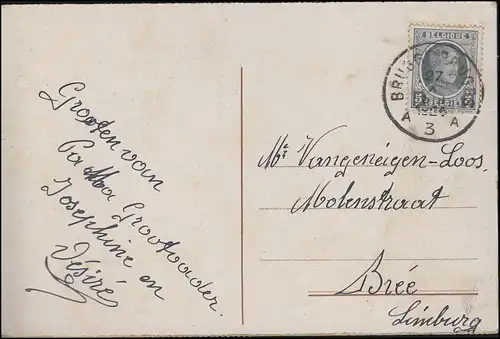 Grooten van
Pa Ma Grootvader.
Josephine en
Désiré
BELGIQUE
BELGIË
3
A A
Mr Vangeneigen-Loos.
Molenstraat
Brée
Limburg